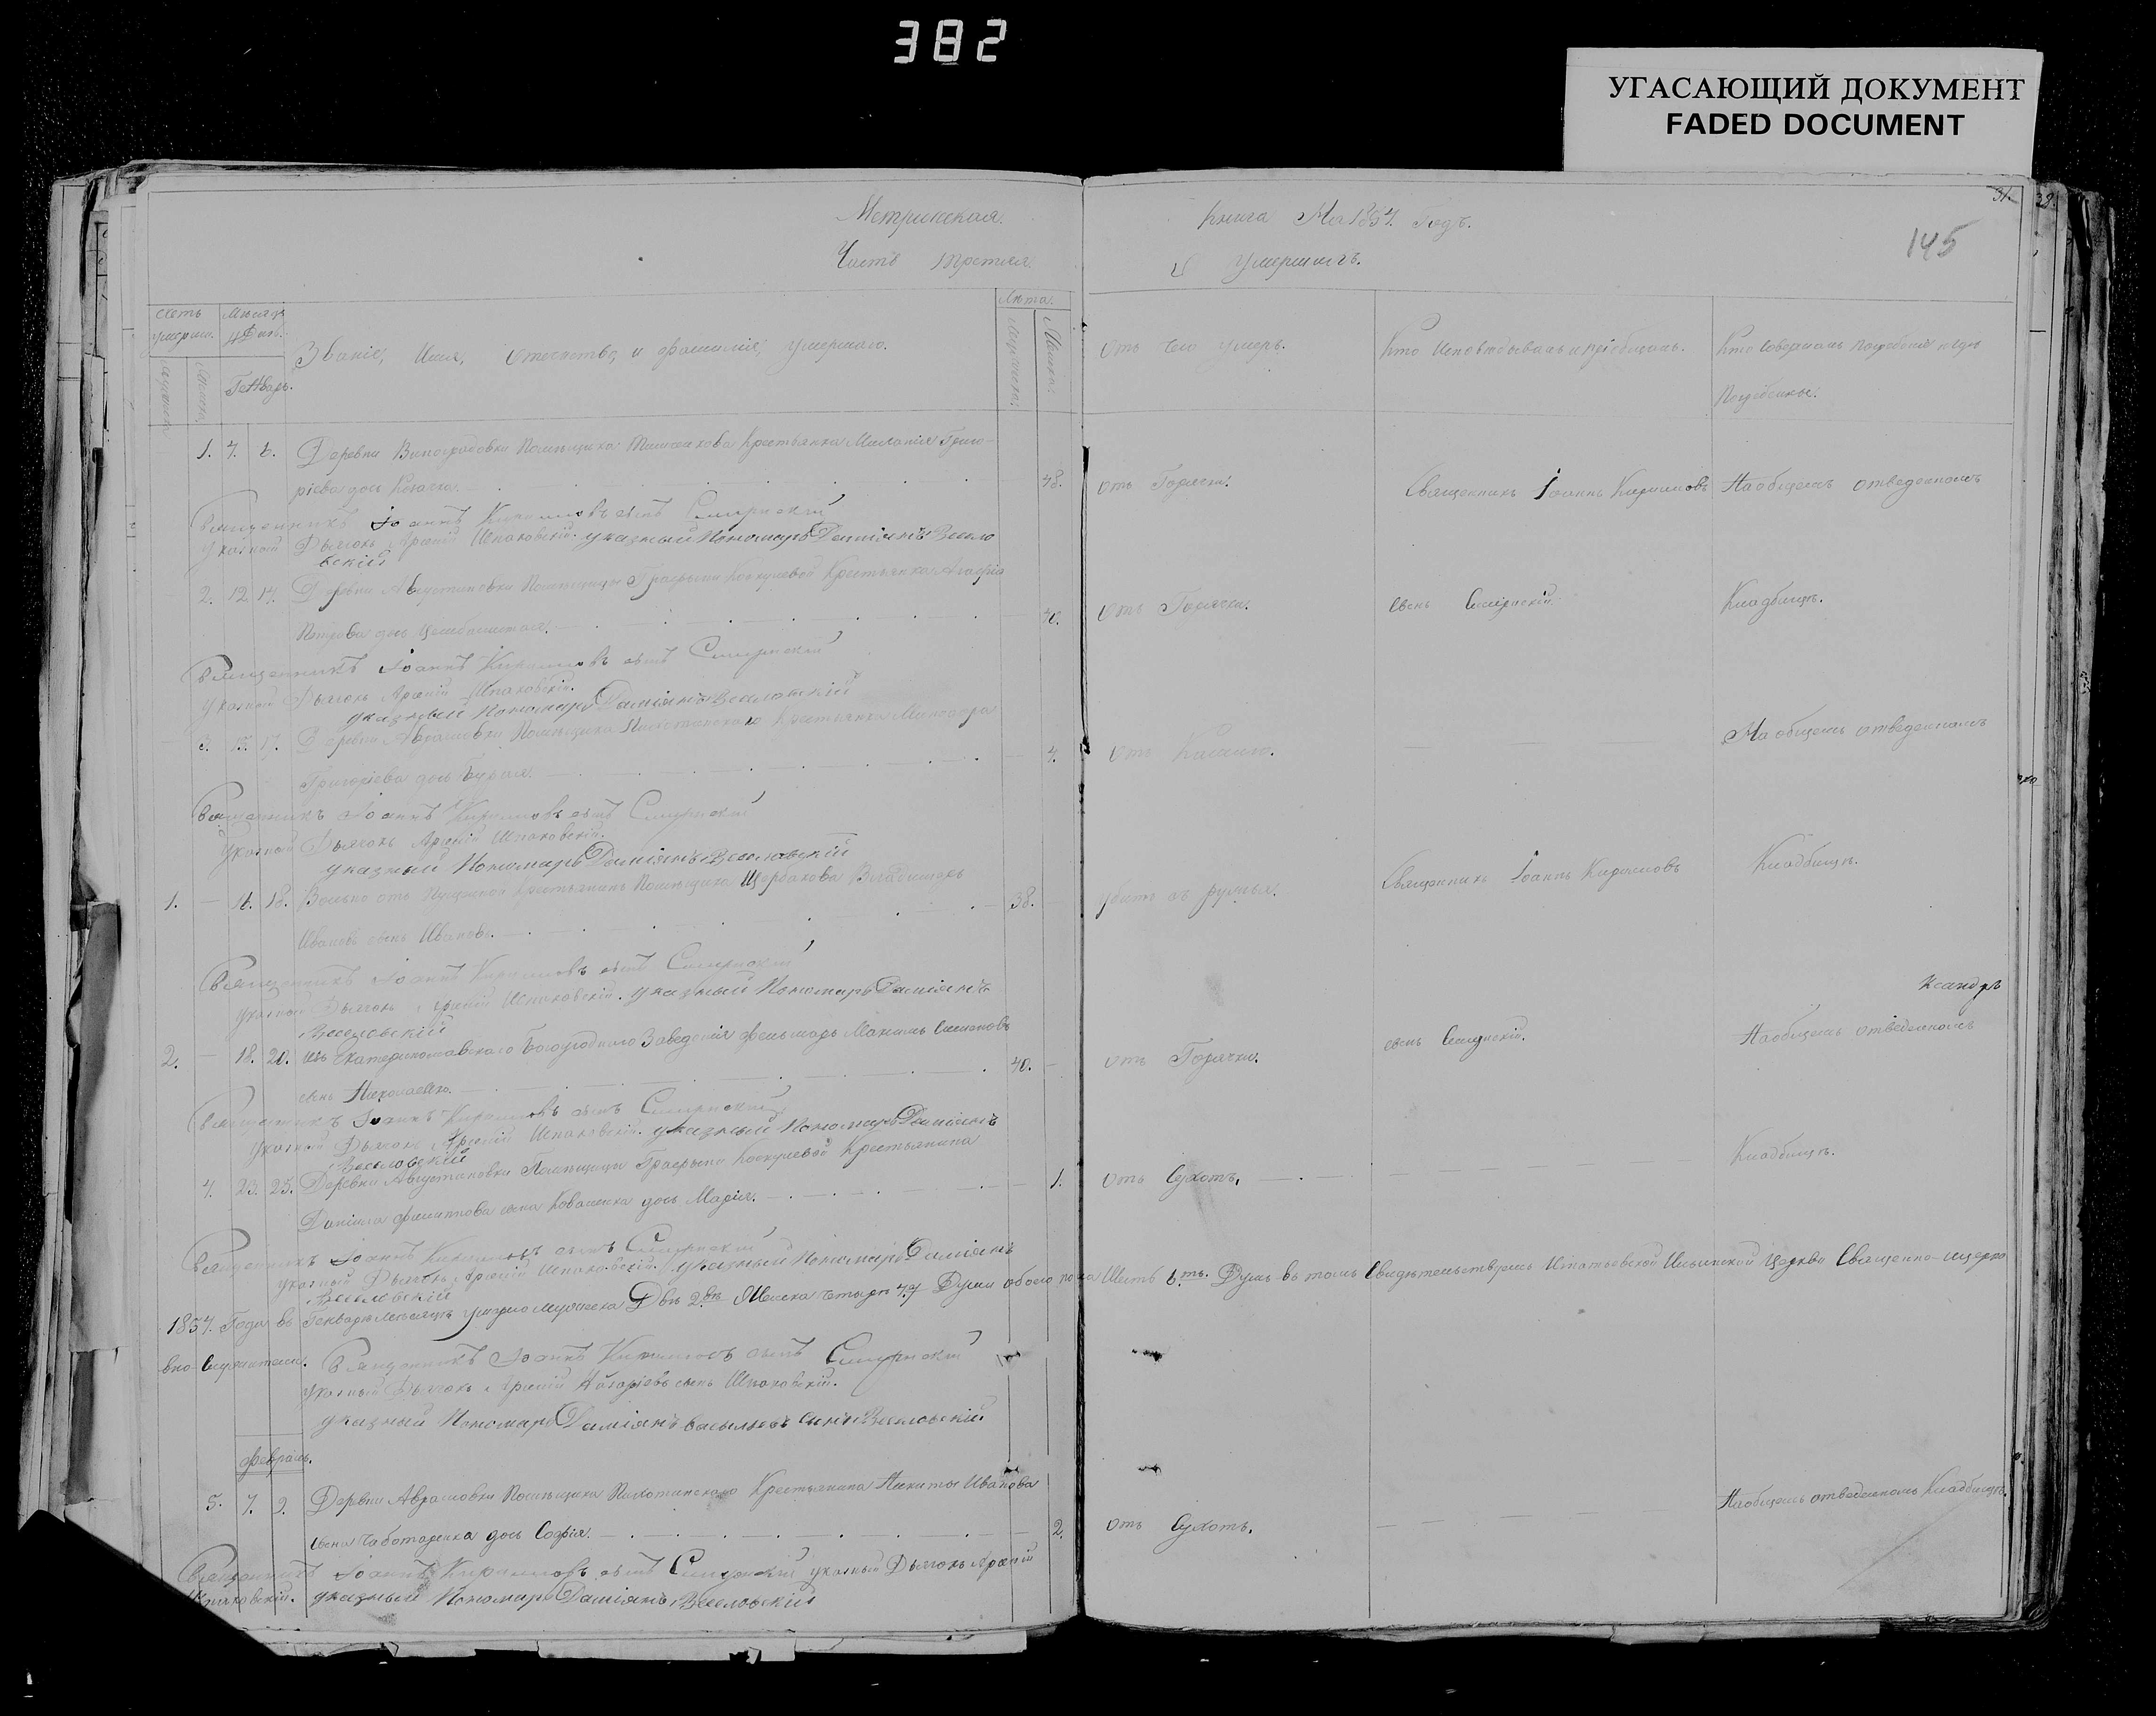 382
УГАСАЮЩИЙ ДОКУМЕНТ
FADED DOCUMENT
Метрическая
Книга На 1857. Годъ.
31.
145
Часть третiя
О Умершихъ.
Мѣсяцъ
и День.
Генварь.
Званiе, Имя, Отчество, и фамилiя, умершаго.
Лѣта.
Отъ чего умеръ.
Кто Исповѣдывалъ и прiобщалъ.
Кто совершалъ погребенiе и гдѣ
Погребены.
1. 4. 6. Деревни Виноградовки Помѣщика Крестьянка Меланiя Григо-
рiева дочь 48. отъ Горячки. Священникъ Iоаннъ Кириловъ На общемъ отведенномъ
Священникъ Iоаннъ Кириловъ сынъ Смирнскiй
указный Дьячокъ Арсенiй Шпаковскiй. указный Пономарь Дамiянъ Весело
вскiй
2. 12. 14. Деревни Августиновки Помѣщицы Графини Крестьянка Агафiя
Петрова дочь 40. отъ Горячки. сынъ Смирнскiй. Кладбищѣ.
Священникъ Iоаннъ Кириловъ сынъ Смирнскiй
указный Дьячокъ Арсенiй Шпаковскiй.
указный Пономарь Дамiянъ Веселовскiй
3. 15. 17. Деревни Аврамовки Помѣщика Крестьянка Минодора
Григорiева дочь 4. отъ Кашлю. На общемъ отведенномъ
Священникъ Iоаннъ Кириловъ сынъ Смирнскiй
указный Дьячокъ Арсенiй Шпаковскiй.
указный Пономарь Дамiянъ Веселовскiй
1. 16. 18. Вольно отъ пущенной крестьянинъ Помѣщика Щербакова Владимиръ
Ивановъ сынъ Ивановъ. 38. убитъ съ ружья. Священникъ Iоаннъ Кириловъ Кладбищѣ.
Священникъ Iоаннъ Кириловъ сынъ Смирнскiй
указный Дьячокъ Арсенiй Шпаковскiй. указный Пономарь Дамiянъ
Веселовскiй
ксандръ
2. 18. 20. Изъ Екатеринославского Богоугодного Заведенiя фельшаръ Максимъ Симеоновъ
сынъ Николаенко. 40. отъ Горячки. сынъ Смирнскiй. На общемъ отведенномъ
Священникъ Iоаннъ Кириловъ сынъ Смирнскiй
указный Дьячокъ Арсенiй Шпаковскiй. указный Пономарь Дамiянъ
Веселовскiй
4. 23. 25. Деревни Августиновки Помѣщицы Графини Крестьянина
Данiила Филиппова сына Коваленка дочь Марiя. 1. отъ Сухотъ. Кладбищѣ.
Священникъ Iоаннъ Кириловъ сынъ Смирнскiй
указный Дьячокъ Арсенiй Шпаковскiй. указный Пономарь Дамiянъ
Веселовскiй
1857. Года въ Генварѣ мѣсяцѣ умерло мужеска Двѣ 2.вѣ Женска четыри 4.ри Души обоего пола Шесть 6.ть. Душъ въ томъ Свидѣтельствуемъ Игнатьевской Ильинской Церкви Священно-церко
вно-Служители. Священникъ Iоаннъ Кириловъ сынъ Смирнскiй
указный Дьячокъ Арсенiй сынъ Шпаковскiй.
указный Пономарь Дамiянъ Васильевъ сынъ Веселовскiй
Февраль.
5. 7. 9. Деревни Аврамовки Помѣщика Крестьянина Никиты Иванова
сына Чаботаренка дочь Софiя. 2. отъ Сухотъ. На общемъ отведенномъ Кладбищѣ.
Священникъ Iоаннъ Кириловъ сынъ Смирнскiй указный Дьячокъ Арсенiй
Шпаковскiй. указный Пономарь Дамiянъ Веселовскiй